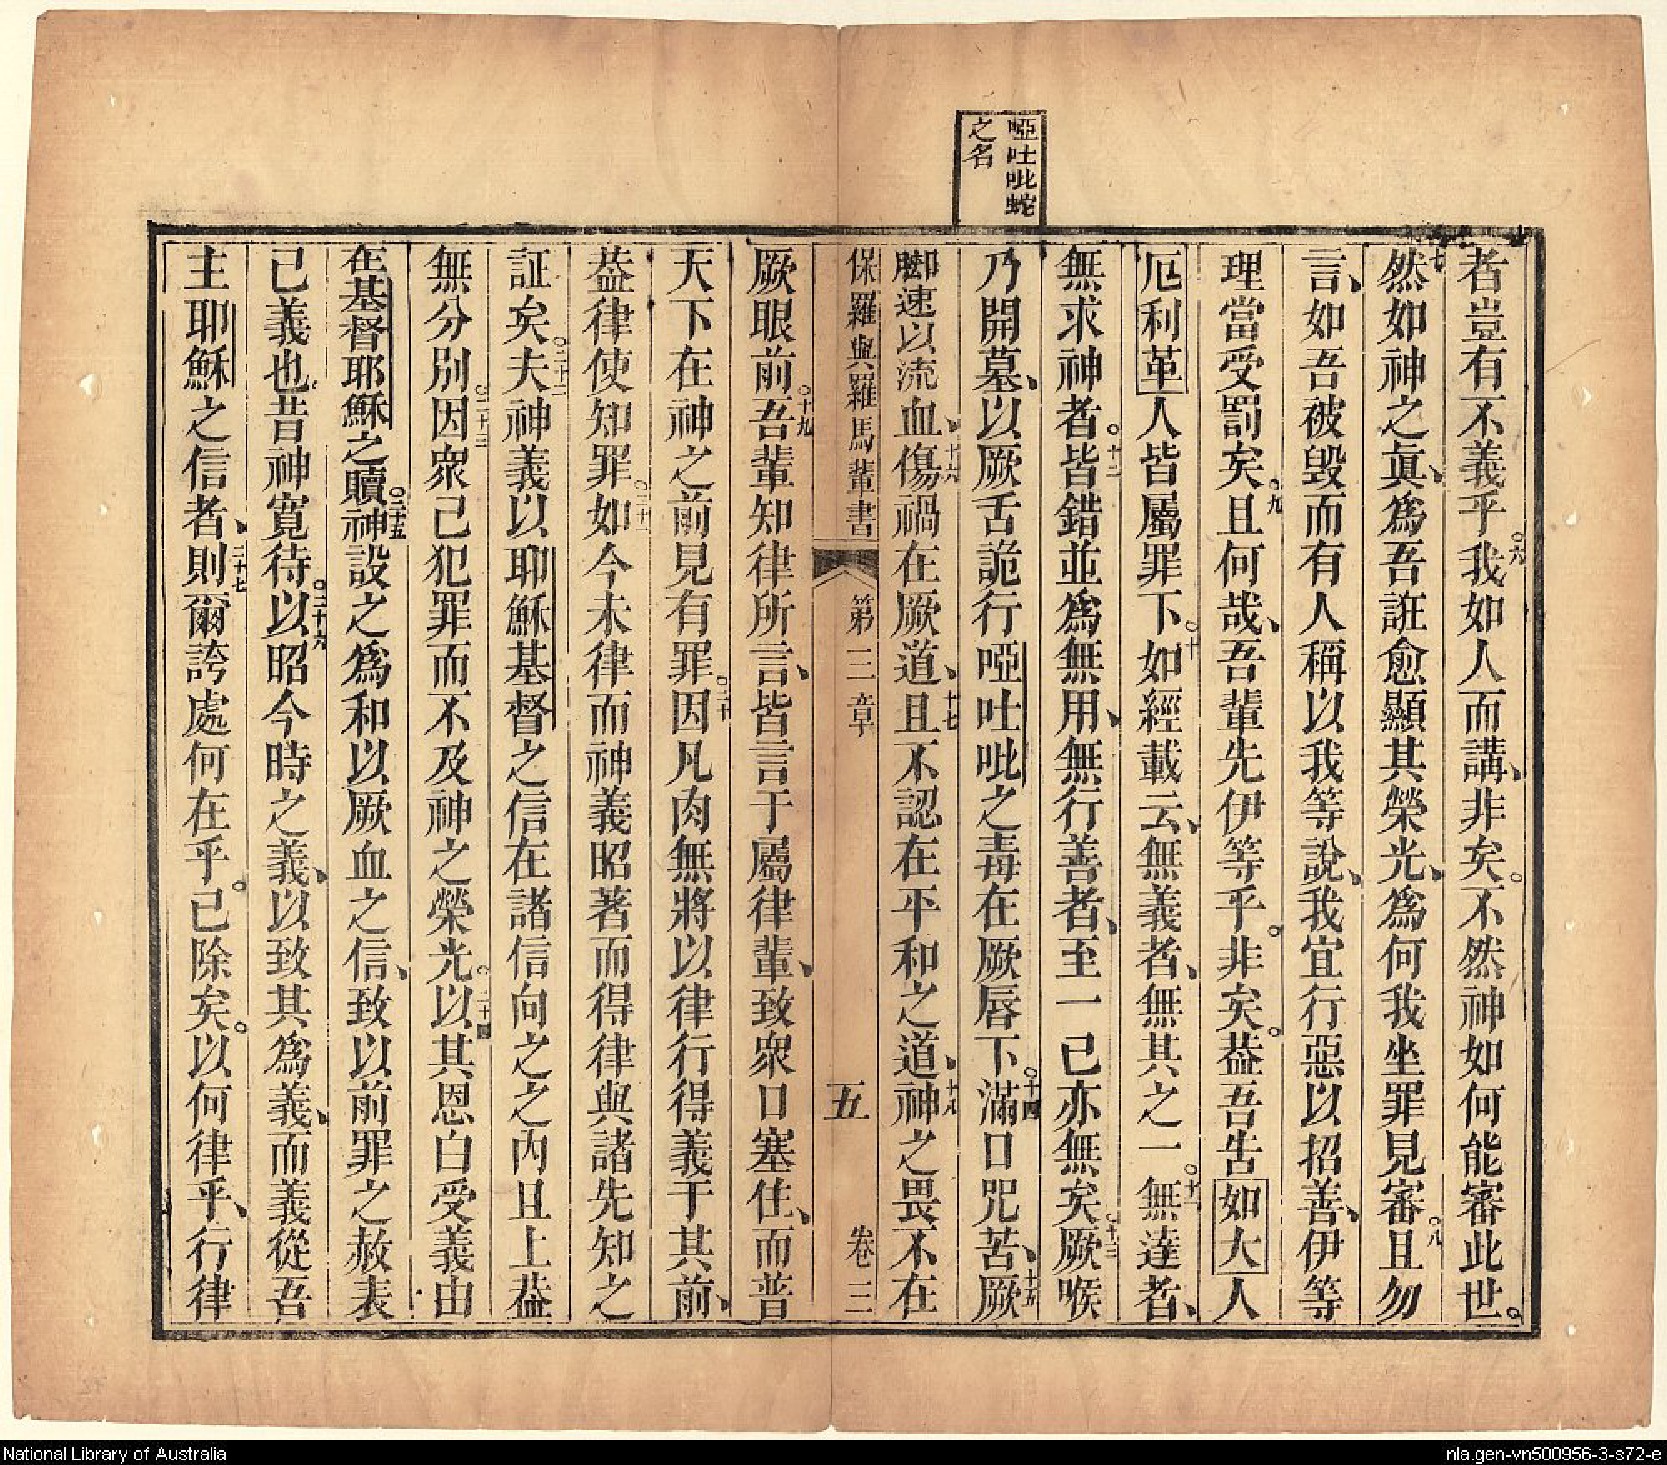 啞吐吡蛇
之名
者豈有不義乎。六我如人而講、非矣。不然神如何能審此世。
七然如神之眞、爲吾誑愈顯其榮光、爲何我坐罪見審。八且勿
言、如吾被毀而有人稱以我等說、我宜行惡以招善、伊等
理當受罰矣。九且何哉、吾輩先伊等乎。非矣。葢吾吿如大人
厄利革人皆屬罪下。十如經載云、無義者、無其之一。十一無達者、
無求神者。十二皆錯並爲無用、無行善者、至一己亦無矣。十三厥喉
乃開墓、以厥舌詭行啞吐吡之毒在厥唇下。十四滿口咒苦、十五厥
脚速以流血、十六傷禍在厥道、十七且不認在平和之道、十八神之畏不在
保羅與羅馬輩書 第三章 五 卷三
厥眼前。十九吾輩知律所言、皆言于屬律輩、致衆口塞住、而普
天下在神之前見有罪。二十因凡肉無將以律行得義于其前、
葢律使知罪。二十一如今未律而神義昭著而得律與諸先知之
証矣。二十二夫神義以耶穌基督之信在諸信向之之內且上葢
無分別。二十三因衆己犯罪而不及神之榮光。二十四以其恩白受義由
在基督耶穌之贖。二十五神設之爲和以厥血之信、致以前罪之赦表
己義也。昔神寬待。二十六以昭今時之義、以致其爲義、而義從吾
主耶穌之信者、二十七則爾誇處何在乎。已除矣。以何律乎、行律
National Library of Australia
nla.gen-vn500956-3-s72-e